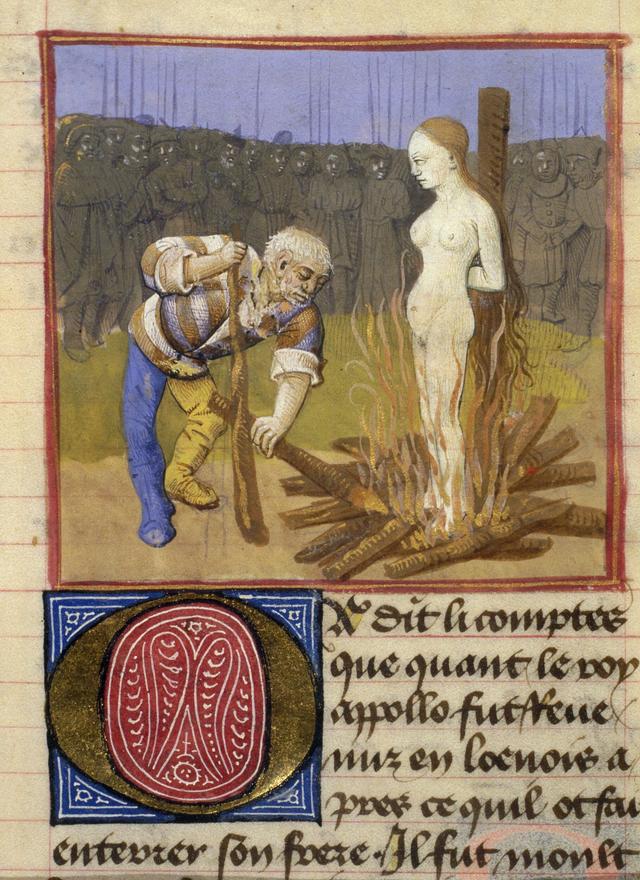 Or dit li comptes
que quant le roy
appollo fut reue
nuz en loenois a
pres ce quil ot fait
enterrer son frere. Il fut moult